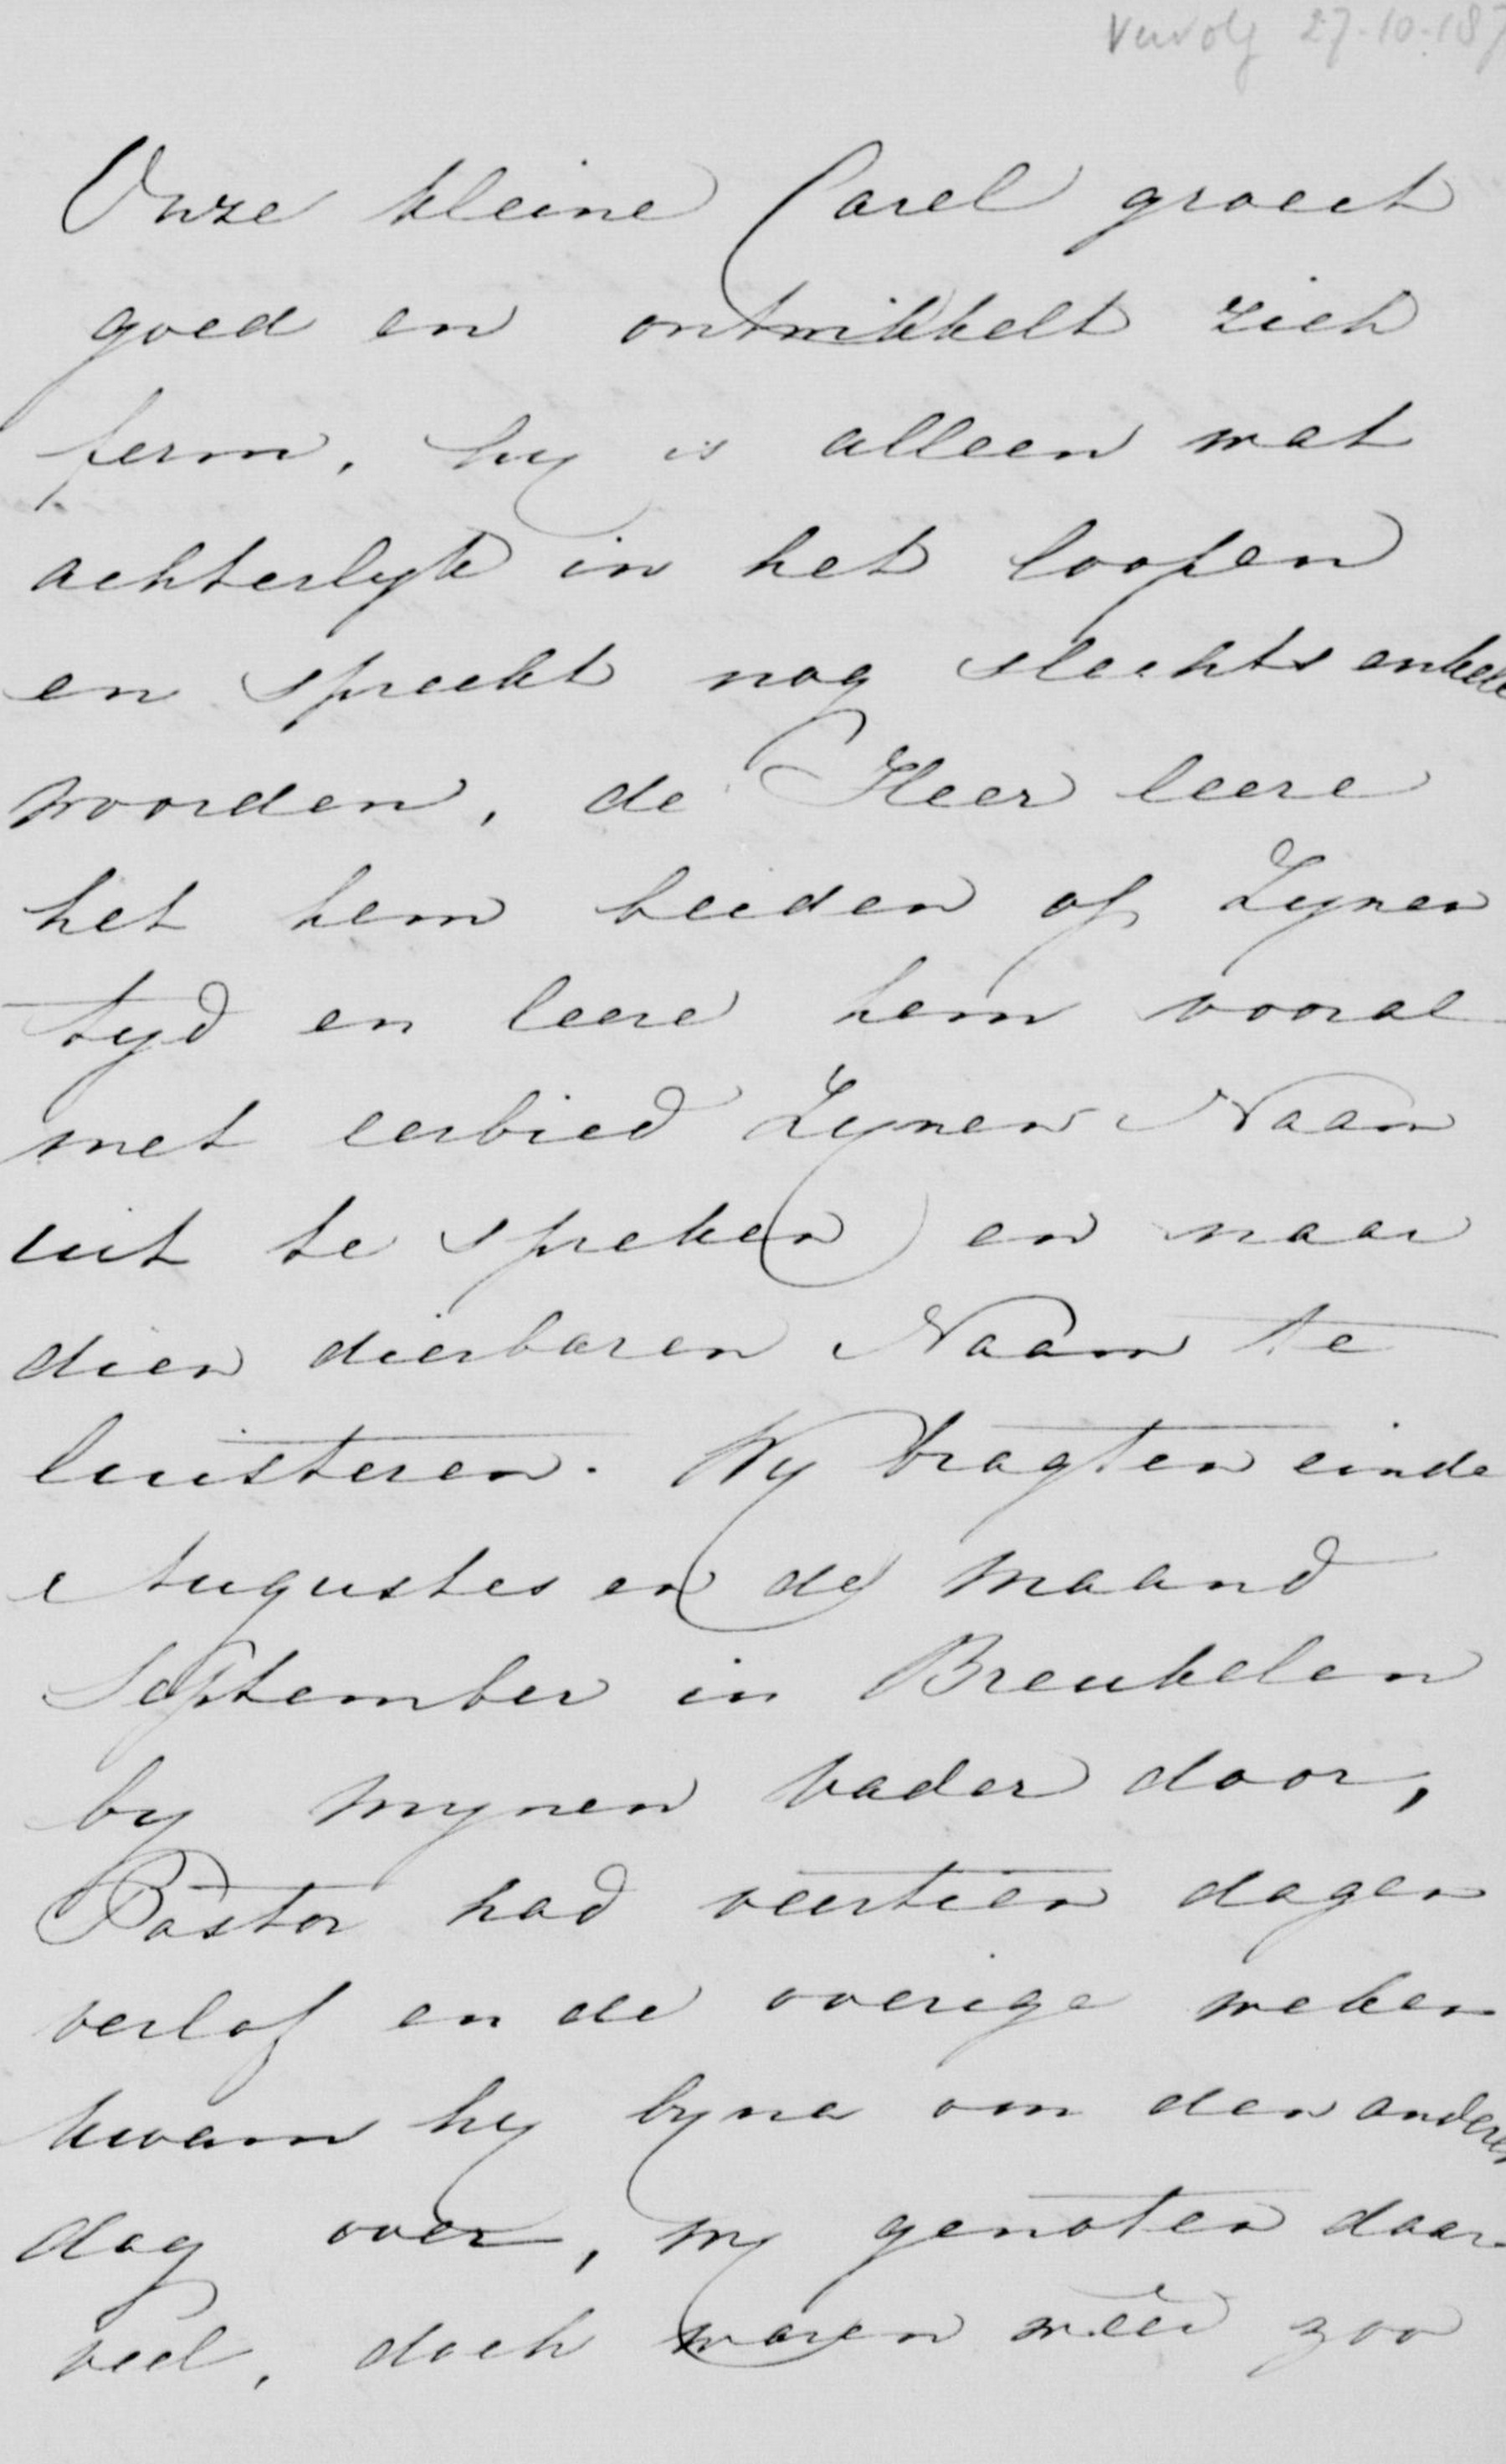 Vervolg 27-10-187
Onze kleine Carel groeit
goed en ontwikkelt zich
ferm, hy is alleen wat
achterlyk in het loopen
en spreekt nog slechts enkele
woorden, de Heer leere
het hem beiden op Zynen
tyd en leere hem vooral
met eerbied Zynen Naam
uit te spreken en naar
dien dierbaren Naam te
luisteren. Wy bragten einde
Augustus en de maand
September in Breukelen
by mynen vader door,
Pastor had veertien dagen
verlof en de overige weken
kwam hy byna om den anderen
dag over, wy genoten daar
veel, doch waren wéér zoo